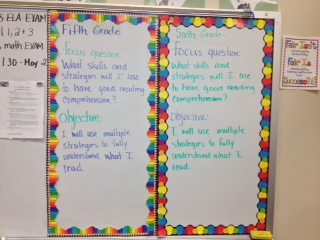 S ELA EXAM
1, 2 + 3
math EXAM
30 - May 2
Fifth Grade
focus question:
What skills and
strategies will I use
to have good reading
comprehension?
Objective:
I will use multiple
strategies to fully
understand what I
read.
Sixth Grade-
Focus question:
What skills and
strategies will I use
to have good reading
comprehension?
Objective:
I will use multiple
strategies to fully
understand what I
read.
Fair Isn't
Fair Is
Successful